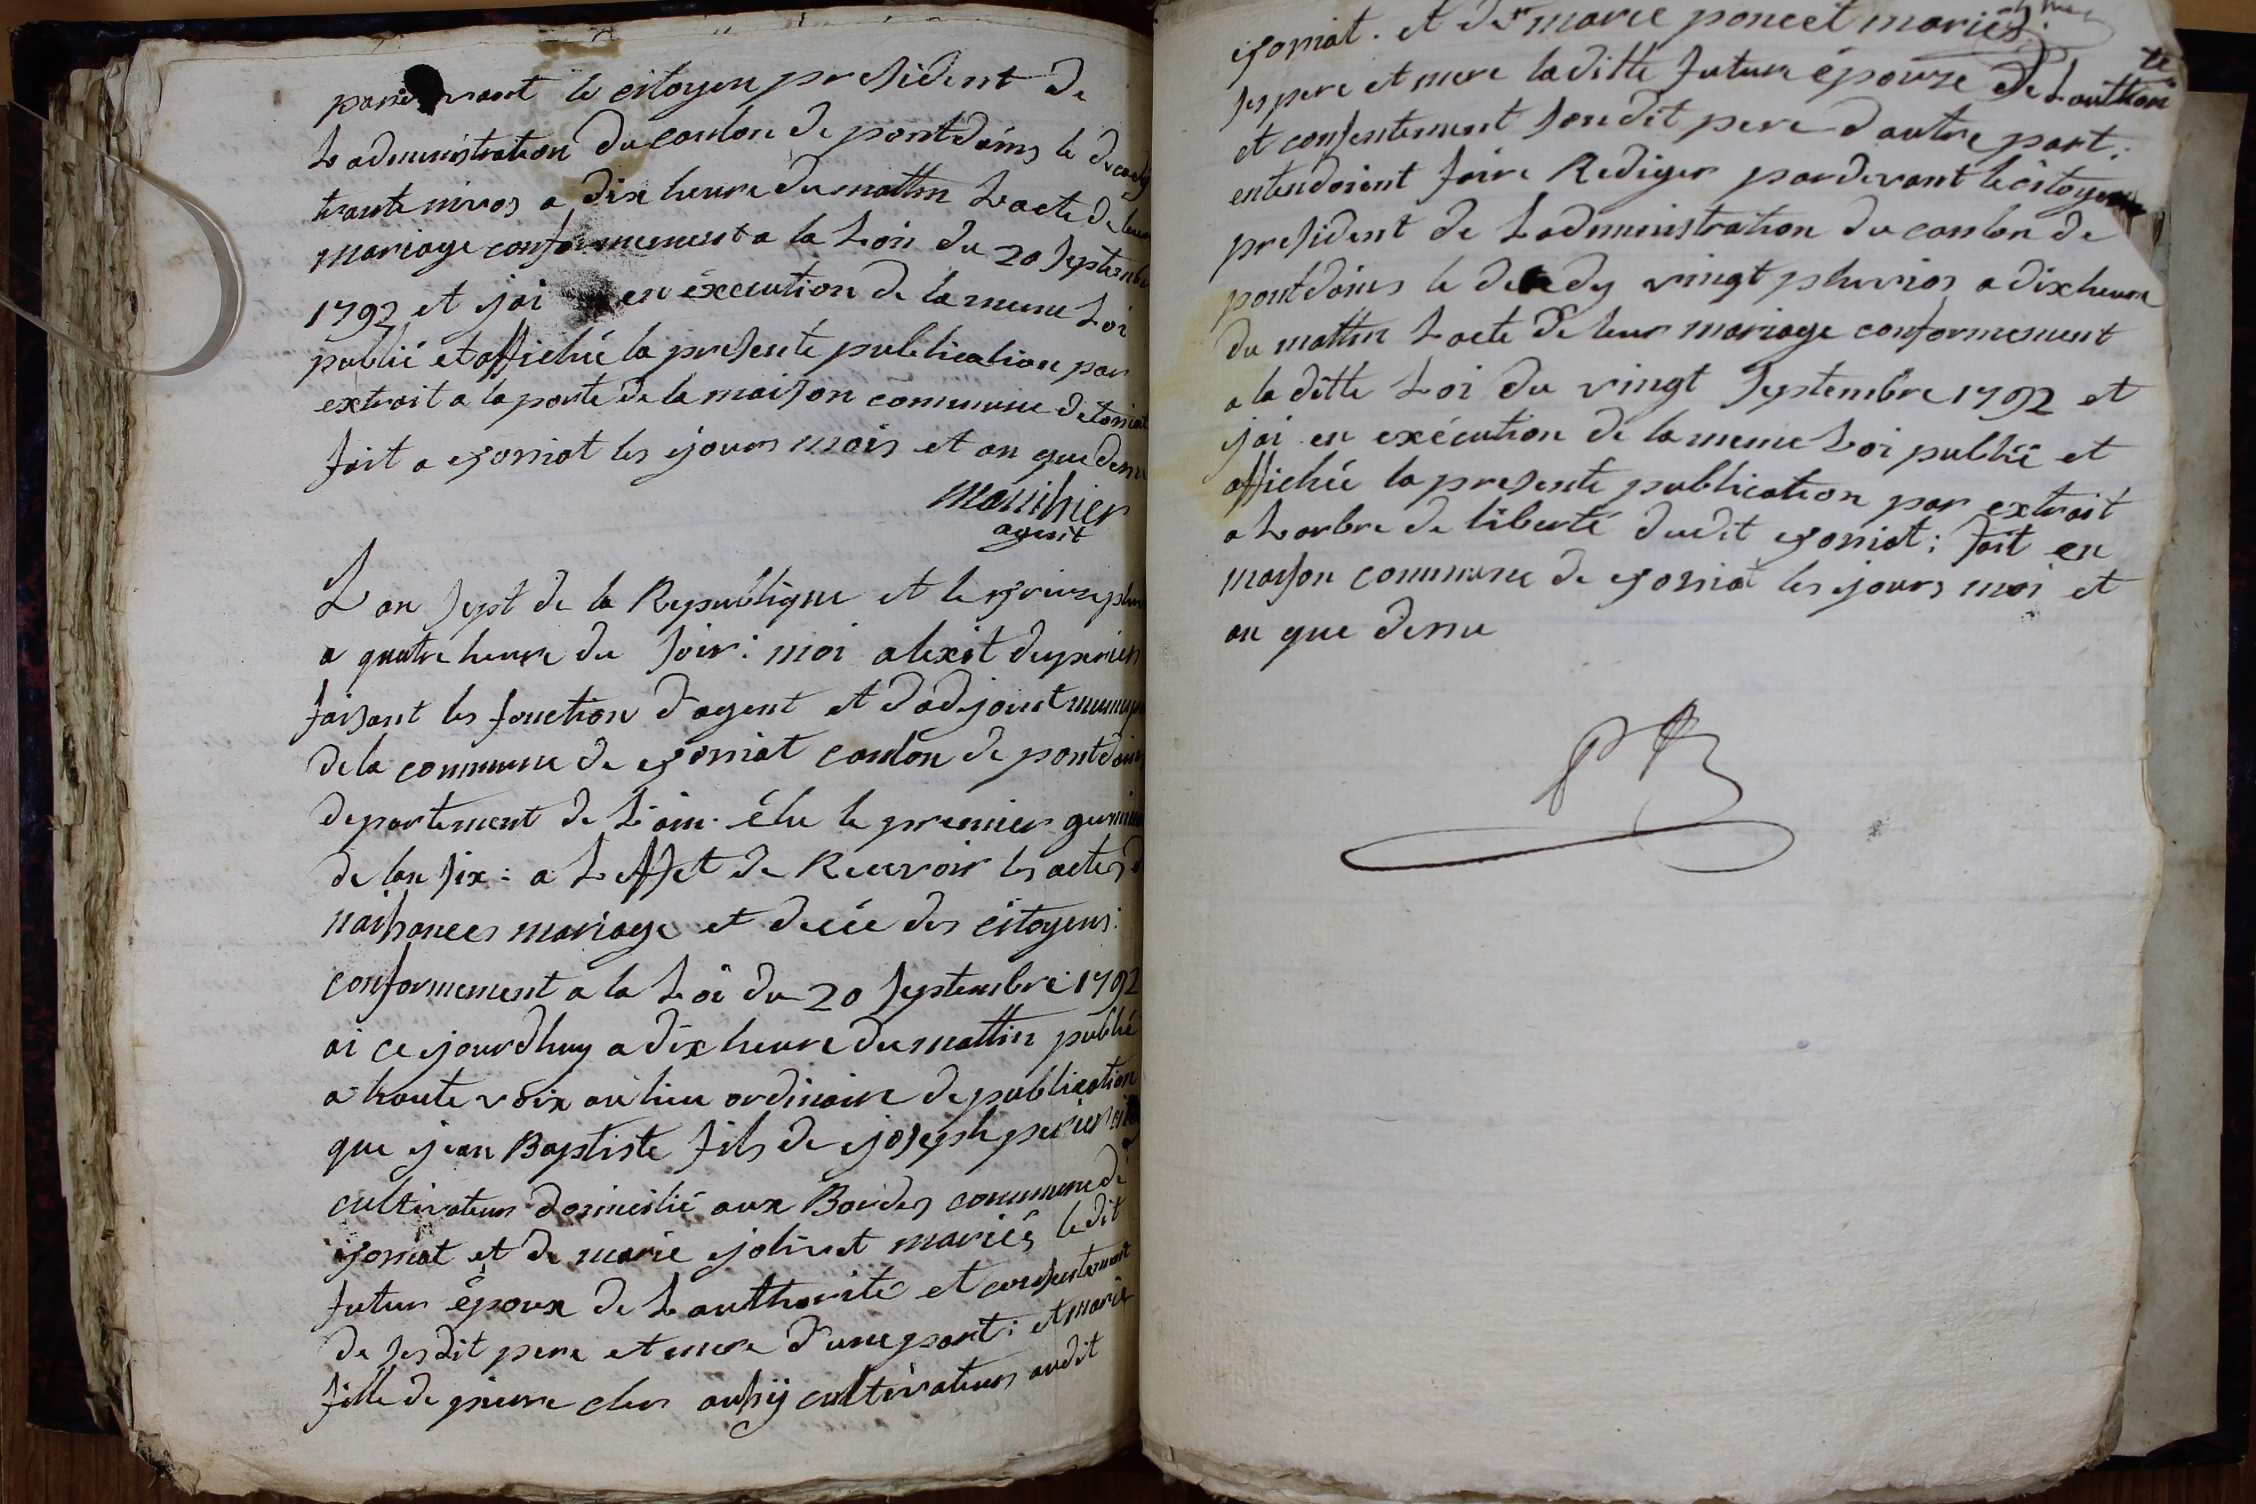 pardevant le citoyen president de
Ladministration du canton de pontdains le decady
trante nivos a dix heure du mattin Lacte de leur
mariage conformement a la Loi du 20 septembre
1792 et jai en éxecution de la meme Loi
publié et affichée la presente publication par
extrait a la porte de la maison commune de
fait a josriat les jours mois et an que dessu
Mauihier
agent
Lan sept de la Republique et le
a quatre heure du soir : moi alexit duperier
faisant les fonction d'agent et dadjoint
de la commune de josriat canton de pontdains
departement de Lain. élu le premier germinal
de lan six : a Leffet de Recevoir les actes de
naissances mariage et decée des citoyens :
conformement a la Loi du 20 septembre 1792
ai ce jourdhuy a dix heure du mattin publié
a haute voix au lieu ordinaire de publication
que jean Baptiste fils de joseph perier
cultivateur domicilié aux Bordes commune de
josriat et de marie jolivet mariés le dit
futur époux de Lauthorité et consentement
de sesdit pere et mere d'une part : et marie
fille de pierre cler aussy cultivateur audit
josriat . et de marie poncet mariés :
ses pere et mere laditte future épouse de Lauthorite
et consentement sondit pere dautre part :
entendoient faire Rediger pardevant le citoyen
president de Ladministration du canton de
pontdains le decady vingt pluvios a dix heure
du mattin Lacte de leur mariage conformement
a la ditte Loi du vingt septembre 1792 et
jai en exécution de la meme Loi publié et
affichée la presente publication par extrait
a Larbre de liberté dudit josriat : fait en
maison commune de josriat les jours moi et
an que dessu